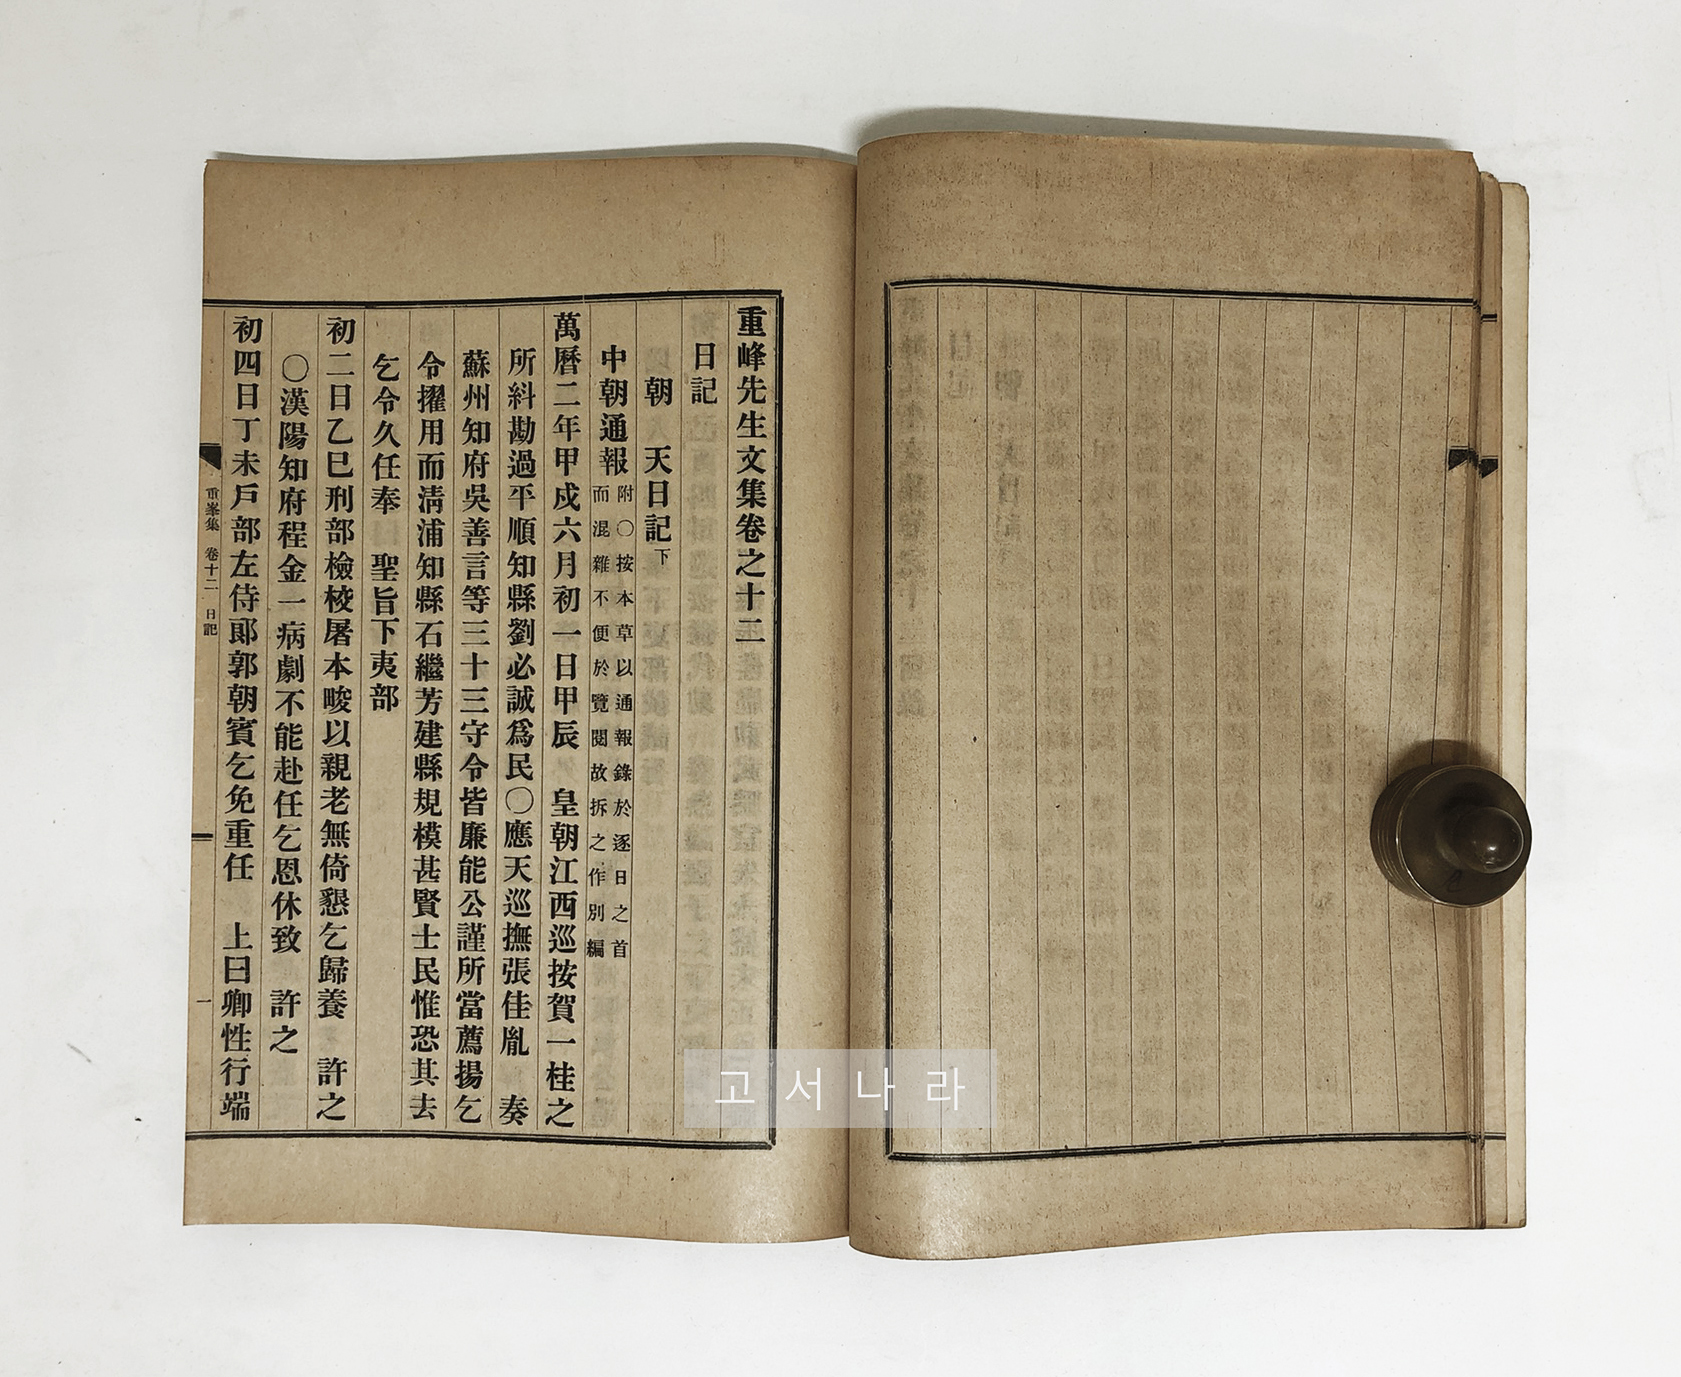 重峰先生文集卷之十二
日記
朝　天日記下
中朝通報附〇按本草以通報錄於逐日之首
而混雜不便於覽閱故拆之作別編
萬曆二年甲戍六月初一日甲辰　皇朝江西巡按賀一桂之
所糾勘過平順知縣劉必誠爲民〇應天巡撫張佳胤　奏
蘇州知府吳善言等三十三守令皆廉能公謹所當薦揚乞
令擢用而淸浦知縣石繼芳建縣規模甚賢士民惟恐其去
乞令久任奉　聖旨下夷部
初二日乙巳刑部檢校屠本畯以親老無倚懇乞歸養　許之
〇漢陽知府程金一病劇不能赴任乞恩休致　許之
初四日丁未戶部左侍郞郭朝賓乞免重任　上曰卿性行端
重峯集　卷十二　日記　一
고서나라